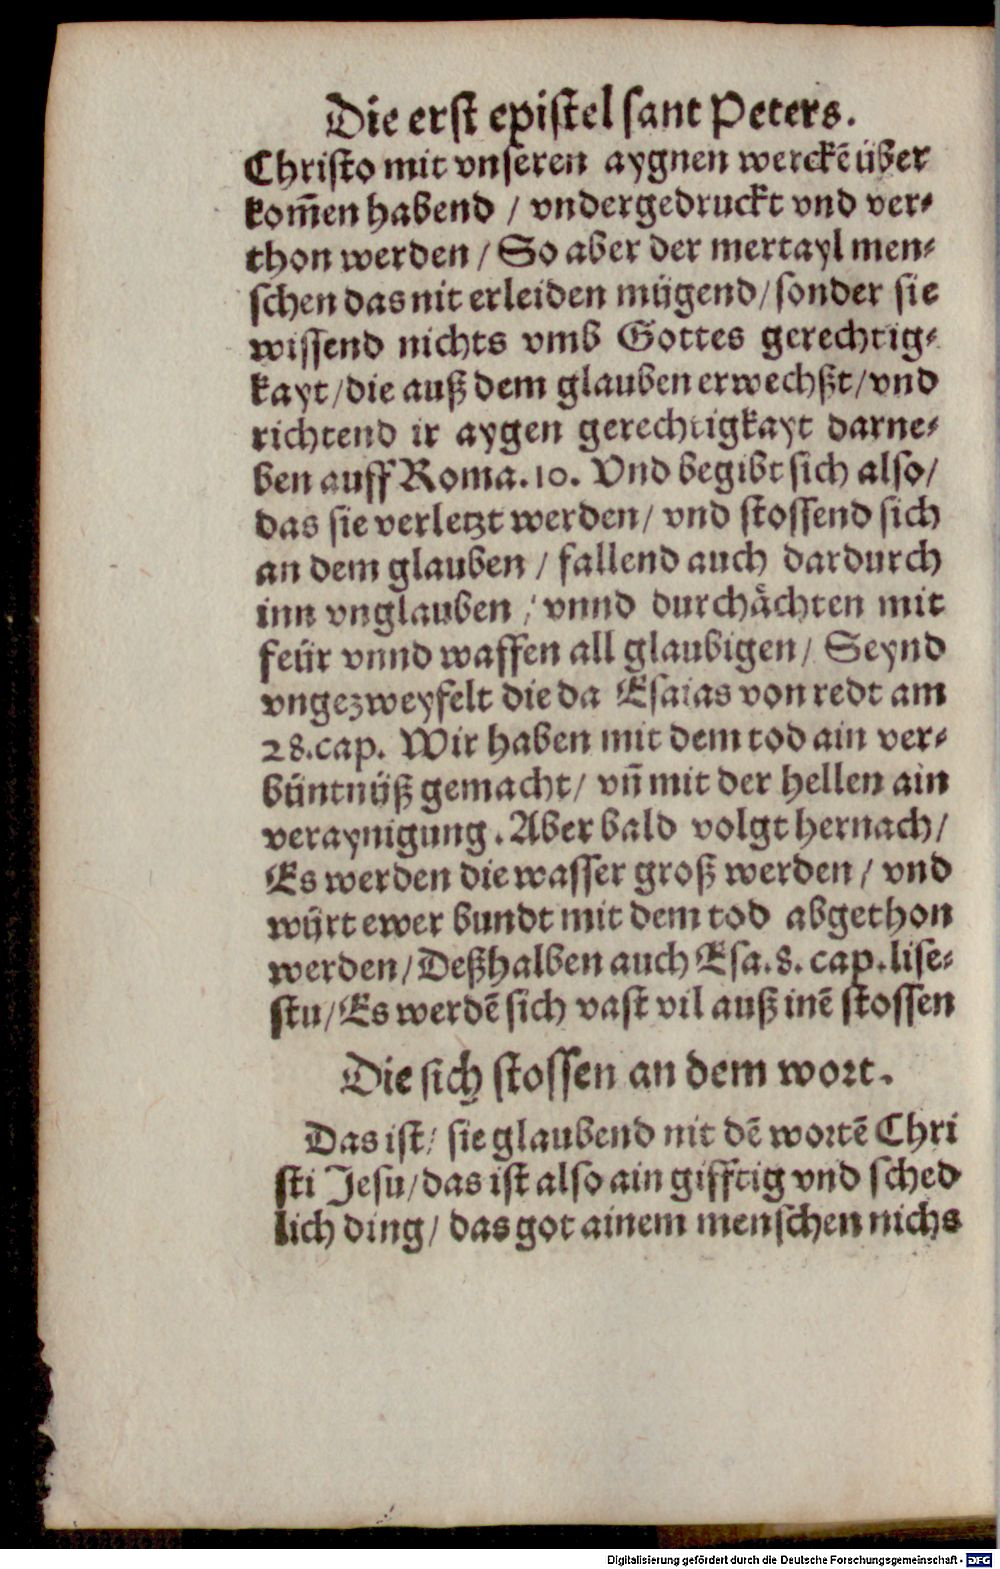 Die erst epistel sant Peters.
Christo mit vnseren aygnen werckē über
kom̄en habend / vndergedruckt vnd ver⸗
thon werden / So aber der mertayl men⸗
schen das nit erleiden mügend / sonder sie
wissend nichts vmb Gottes gerechtig⸗
kayt / die auß dem glauben erwechßt / vnd
richtend ir aygen gerechtigkayt darne⸗
ben auff Roma. 10. Vnd begibt sich also /
das sie verletzt werden / vnd stossend sich
an dem glauben / fallend auch dardurch
inn vnglauben / vnnd durchaͤchten mit
feür vnnd waffen all glaubigen / Seynd
vngezweyfelt die da Esaias von redt am
28. cap. Wir haben mit dem tod ain ver⸗
büntnüß gemacht / vn̄ mit der hellen ain
veraynigung. Aber bald volgt hernach /
Es werden die wasser groß werden / vnd
würt ewer bundt mit dem tod abgethon
werden / Deßhalben auch Esa. 8. cap. lise⸗
stu / Es werdē sich vast vil auß inē stossen
Die sich stossen an dem wort.
Das ist / sie glaubend nit dē wortē Chri
sti Jesu / das ist also ain gifftig vnd sched
lich ding / das got ainem menschen nichs
Digitalisierung gefördert durch die Deutsche Forschungsgemeinschaft - DFG